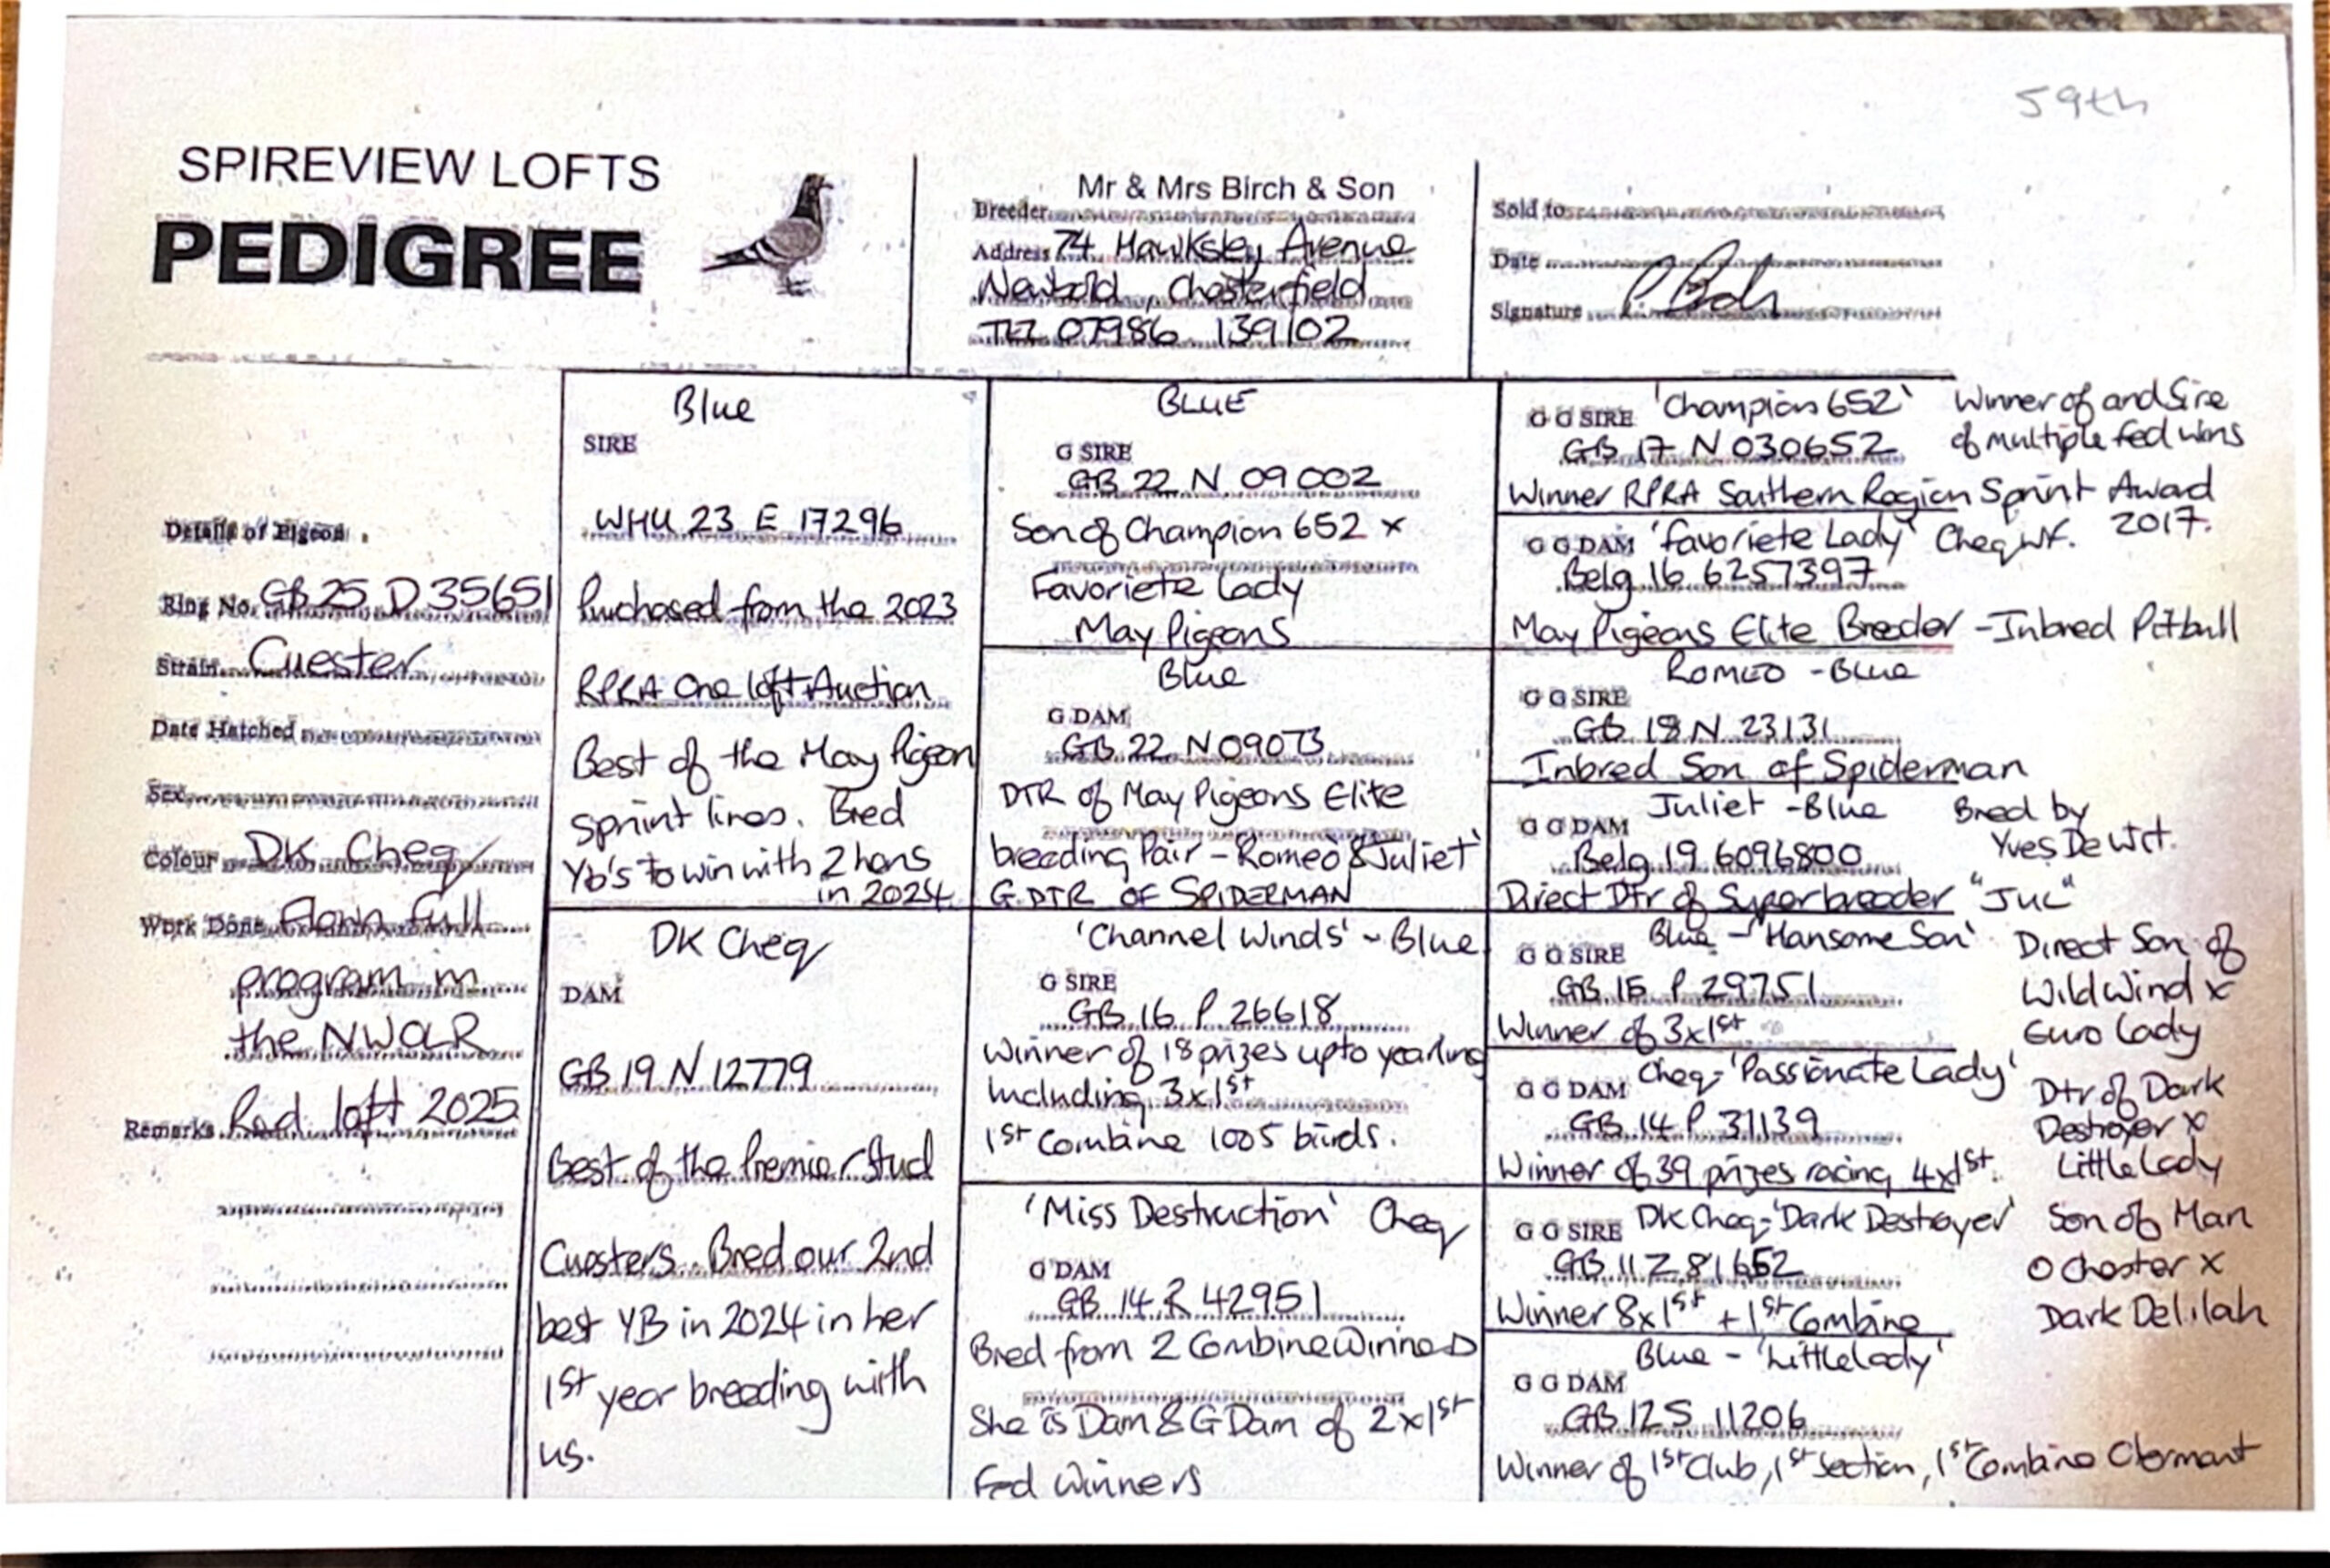 59th
SPIREVIEW LOFTS
PEDIGREE
Mr & Mrs Birch & Son
Breeder
Address 74 Hawksley Avenue
Newbold, Chesterfield
TEL 07986 139102
Sold to
Date
Signature
Details of Pigeon
Ring No. GB 25 D 35651
Strain Cuester
Date Hatched
Sex
Colour DK Cheq
Work Done Flown full
program in
the NWOLR
Remarks Rod loft 2025
Blue
SIRE
WHU 23 E 17296
Purchased from the 2023
RPRA One loft Auction
Best of the May Pigeon
sprint lines. Bred
Yb's to win with 2 hens
in 2024
DK Cheq
DAM
GB 19 N 12779
Best of the Premier Stud
Cuesters. Bred our 2nd
best YB in 2024 in her
1st year breeding with
us.
BLUE
G SIRE
GB 22 N 09002
Son of Champion 652 x
Favoriete Lady
May Pigeons
Blue
G DAM
GB 22 N 09073
DTR of May Pigeons Elite
breeding Pair - Romeo & Juliet
G DTR OF SPIDERMAN
'Channel Winds' - Blue
G SIRE
GB 16 P 26618
Winner of 18 prizes upto yearling
Including 3x1st
1st Combine 1005 birds.
'Miss Destruction' Cheq
G DAM
GB 14 R 42951
Bred from 2 Combine Winners
She is Dam & G Dam of 2x1st
Fed Winners
G G SIRE 'Champion 652' Winner of and Sire
GB 17 N 030652 of multiple fed wins
Winner RPRA Southern Region Sprint Award
2017.
G G DAM 'Favoriete Lady' Cheq WF.
Belg 16 6257397
May Pigeons Elite Breeder - Inbred Pitbull
Romeo - Blue
G G SIRE
GB 18 N 23131
Inbred Son of Spiderman
Juliet - Blue Bred by
G G DAM Yves De Wit.
Belg 19 6096800
Direct Dtr of Superbreeder "Jul"
Blue - 'Hansome Son' Direct Son of
G G SIRE
GB 15 P 29751 Wild Wind x
Winner of 3x1st Euro Lady
G G DAM Cheq - 'Passionate Lady' Dtr of Dark
GB 14 P 31139 Destroyer x
Winner of 39 prizes racing 4x1st. Little Lady
G G SIRE DK Cheq - 'Dark Destroyer' Son of Man
GB 11 Z 81652 O Chester x
Winner 8x1st + 1st Combine Dark Delilah
Blue - 'Little lady'
G G DAM
GB 12 S 11206
Winner of 1st Club, 1st Section, 1st Combine Clermont